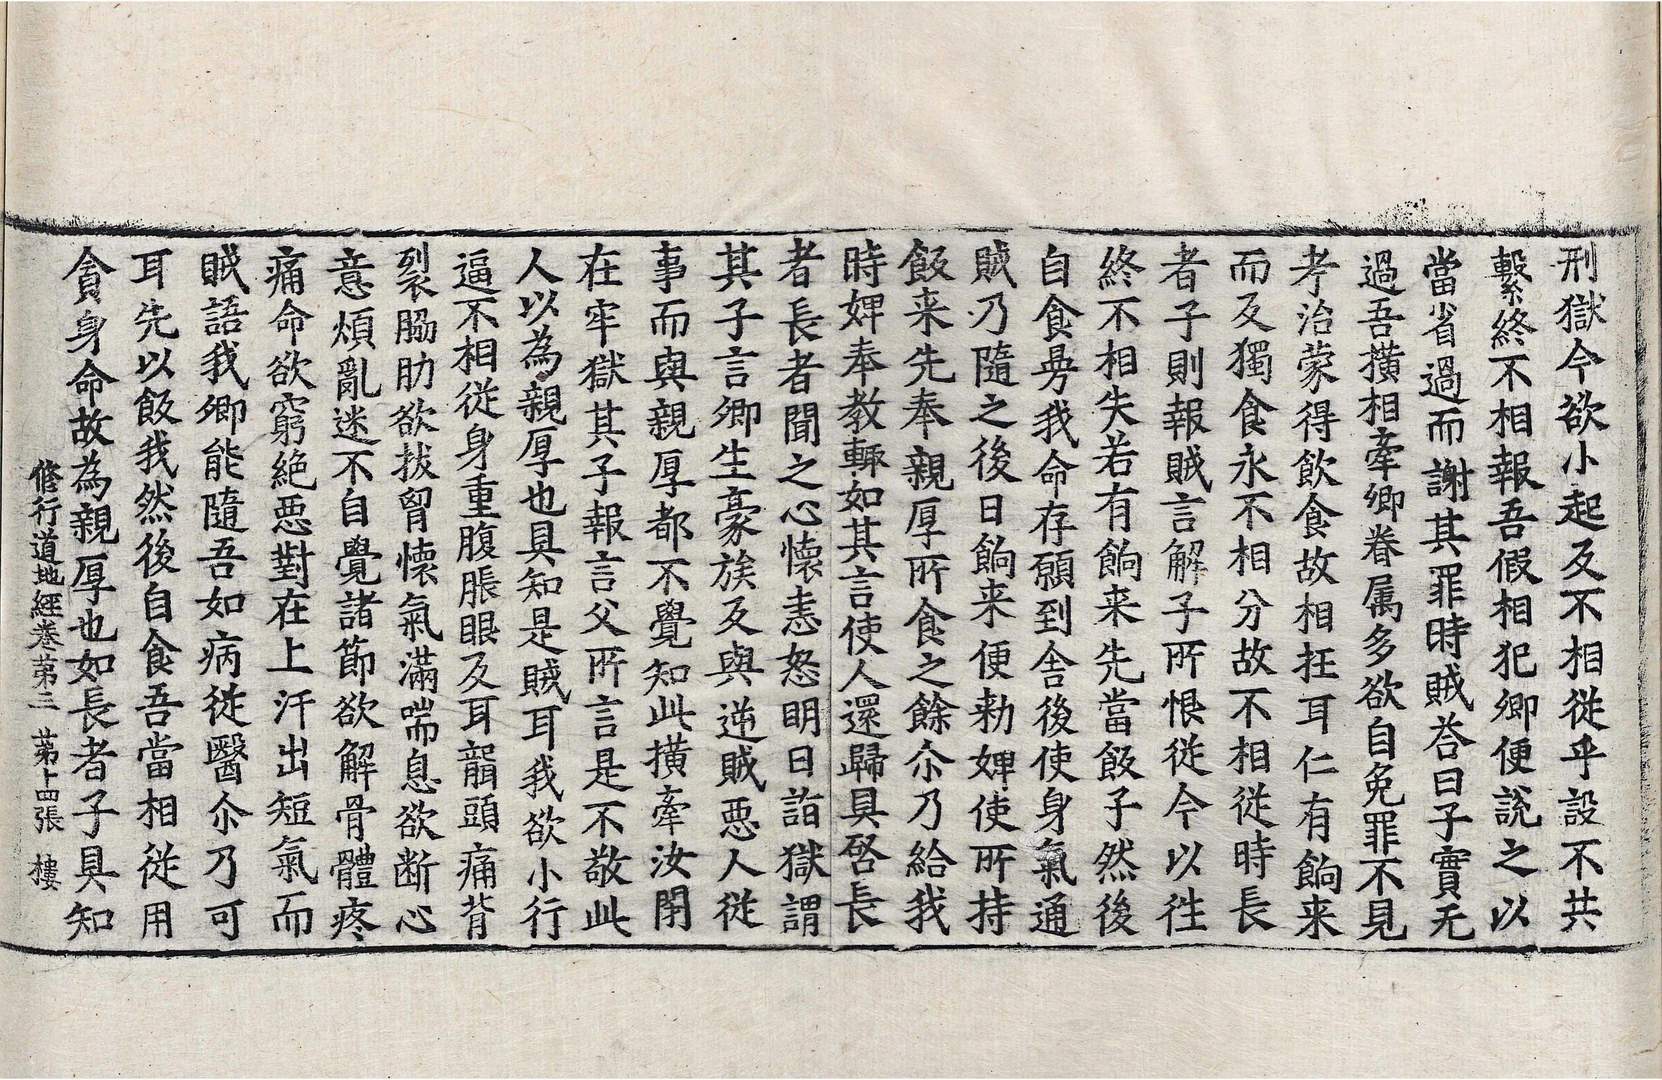 刑獄今欲小起反不相従乎設不共
繫終不相報吾假相犯卿便説之以
當省過而謝其罪時賊荅曰子實无
過吾撗相牽卿眷属多欲自免罪不見
考治蒙得飲食故相抂耳仁有餉来
而反獨食永不相分故不相従時長
者子則報賊言解子所恨従今以往
終不相失若有餉来先當飯子然後
自食旁我命存願到舎後使身氣通
賊乃隨之後日餉来便勑婢使所持
飯来先奉親厚所食之餘尒乃給我
時婢奉教輙如其言使人還歸具啓長
者長者聞之心懷恚怒明日詣獄謂
其子言卿生豪族反與逆賊惡人従
事而與親厚都不覺知此撗牽汝閉
在牢獄其子報言父所言是不敬此
人以為親厚也具知是賊耳我欲小行
逼不相従身重腹脹眼反耳聾頭痛背
裂脇肋欲拔胷懷氣滿喘息欲断心
意煩亂迷不自覺諸節欲解骨體疼
痛命欲窮絶惡對在上汗出短氣而
賊語我卿能隨吾如病従醫尒乃可
耳先以飯我然後自食吾當相従用
貪身命故為親厚也如長者子具知
修行道地經卷第三　第十四張　樓